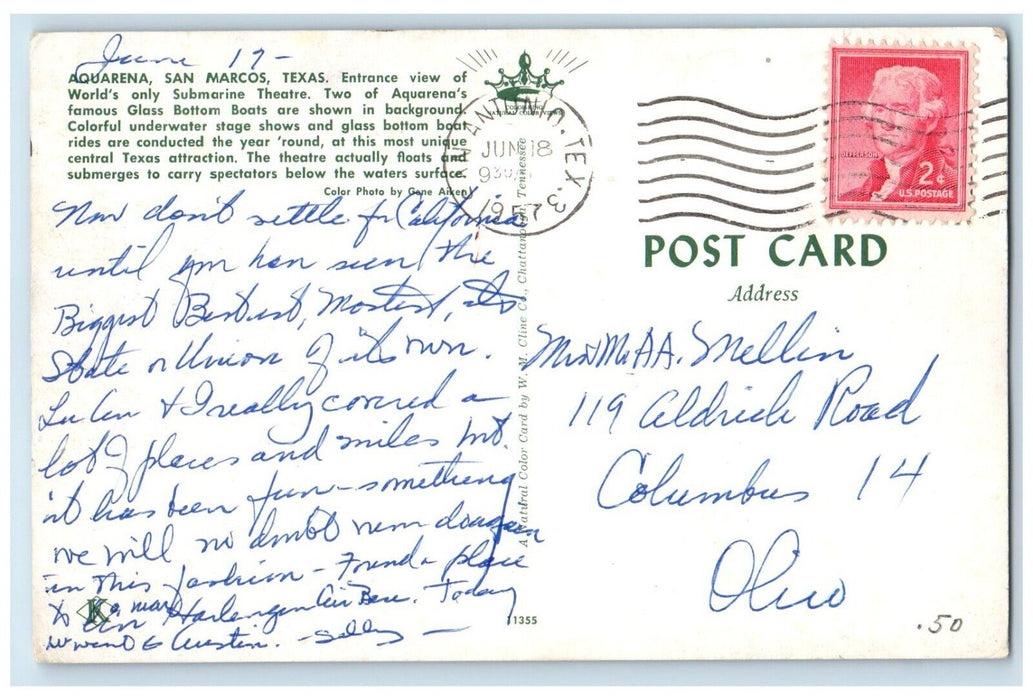 June 17-
AQUARENA, SAN MARCOS, TEXAS. Entrance view of
World's only Submarine Theatre. Two of Aquarena's
famous Glass Bottom Boats are shown in background.
Colorful underwater stage shows and glass bottom boat
rides are conducted the year 'round, at this most unique
central Texas attraction. The theatre actually floats and
submerges to carry spectators below the waters surface.
Color Photo by Gene Aiken
Now don't settle for California
until you have seen the
Biggest Bestest, Mostest, its
State or Union of its own.
Lu Ann & I really covered a
lot of places and miles but
it has been fun - something
we will no doubt never do again
in this fashion - Found a place
to
Harlengen Air Base. Today
we went to Austin. - Sally -
K
A Natural Color Card by W. M. Cline Co., Chattanooga, Tennessee
11355
NATURAL COLOR VIEWS
SAN ANTONIO, TEX. 3
JUN 18
930 AM
1957
JEFFERSON
2¢
U.S. POSTAGE
POST CARD
Address
Mr & Mrs A.A. Mellin
119 Aldrich Road
Columbus 14
Ohio
.50